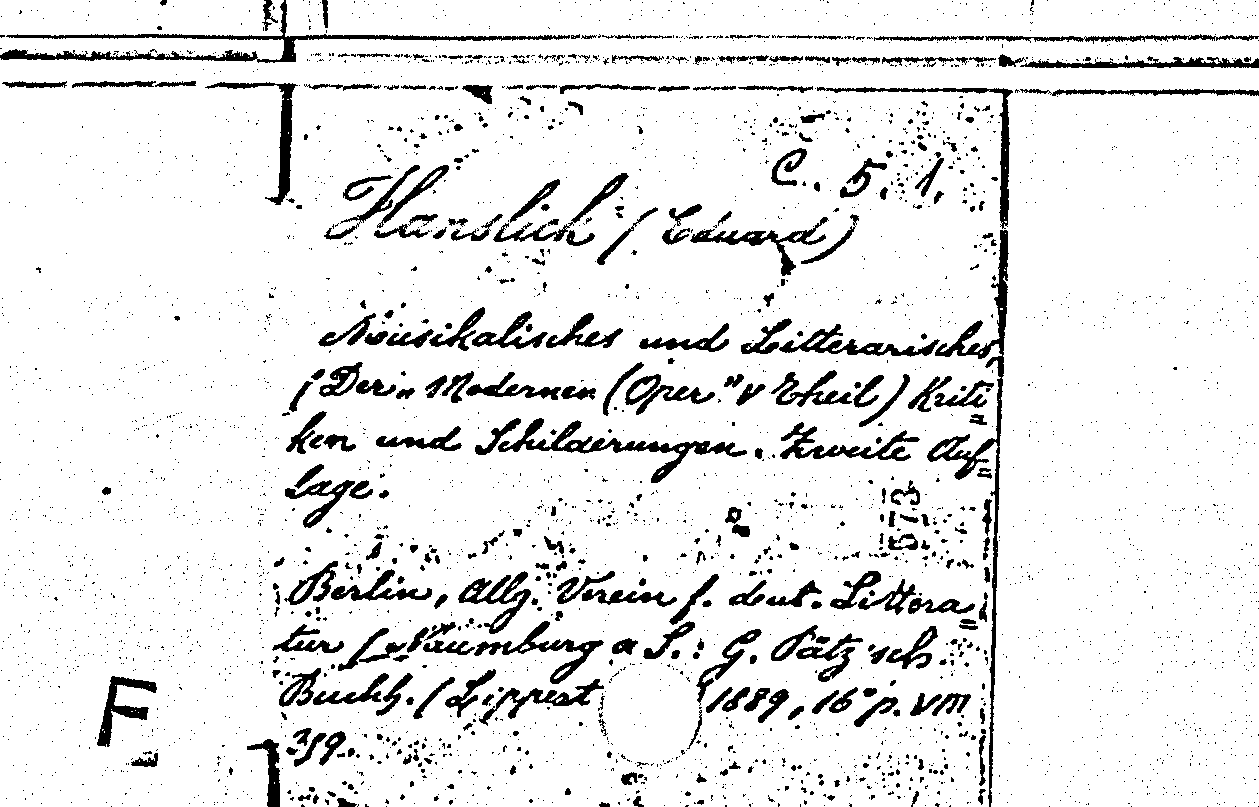 C. 5. 1.
Hanslick (Eduard)
Musikalisches und Litterarisches,
(Der „Modernen (Oper" V Theil) Kriti=
ken und Schilderungen. Zweite Auf=
lage.
573
Berlin, Allg. Verein f. deut. Littera=
tur (Naumburg a S.: G. Pätz'sch.
Buchh. (Lippert 1889, 16° p. VIII
359.
F